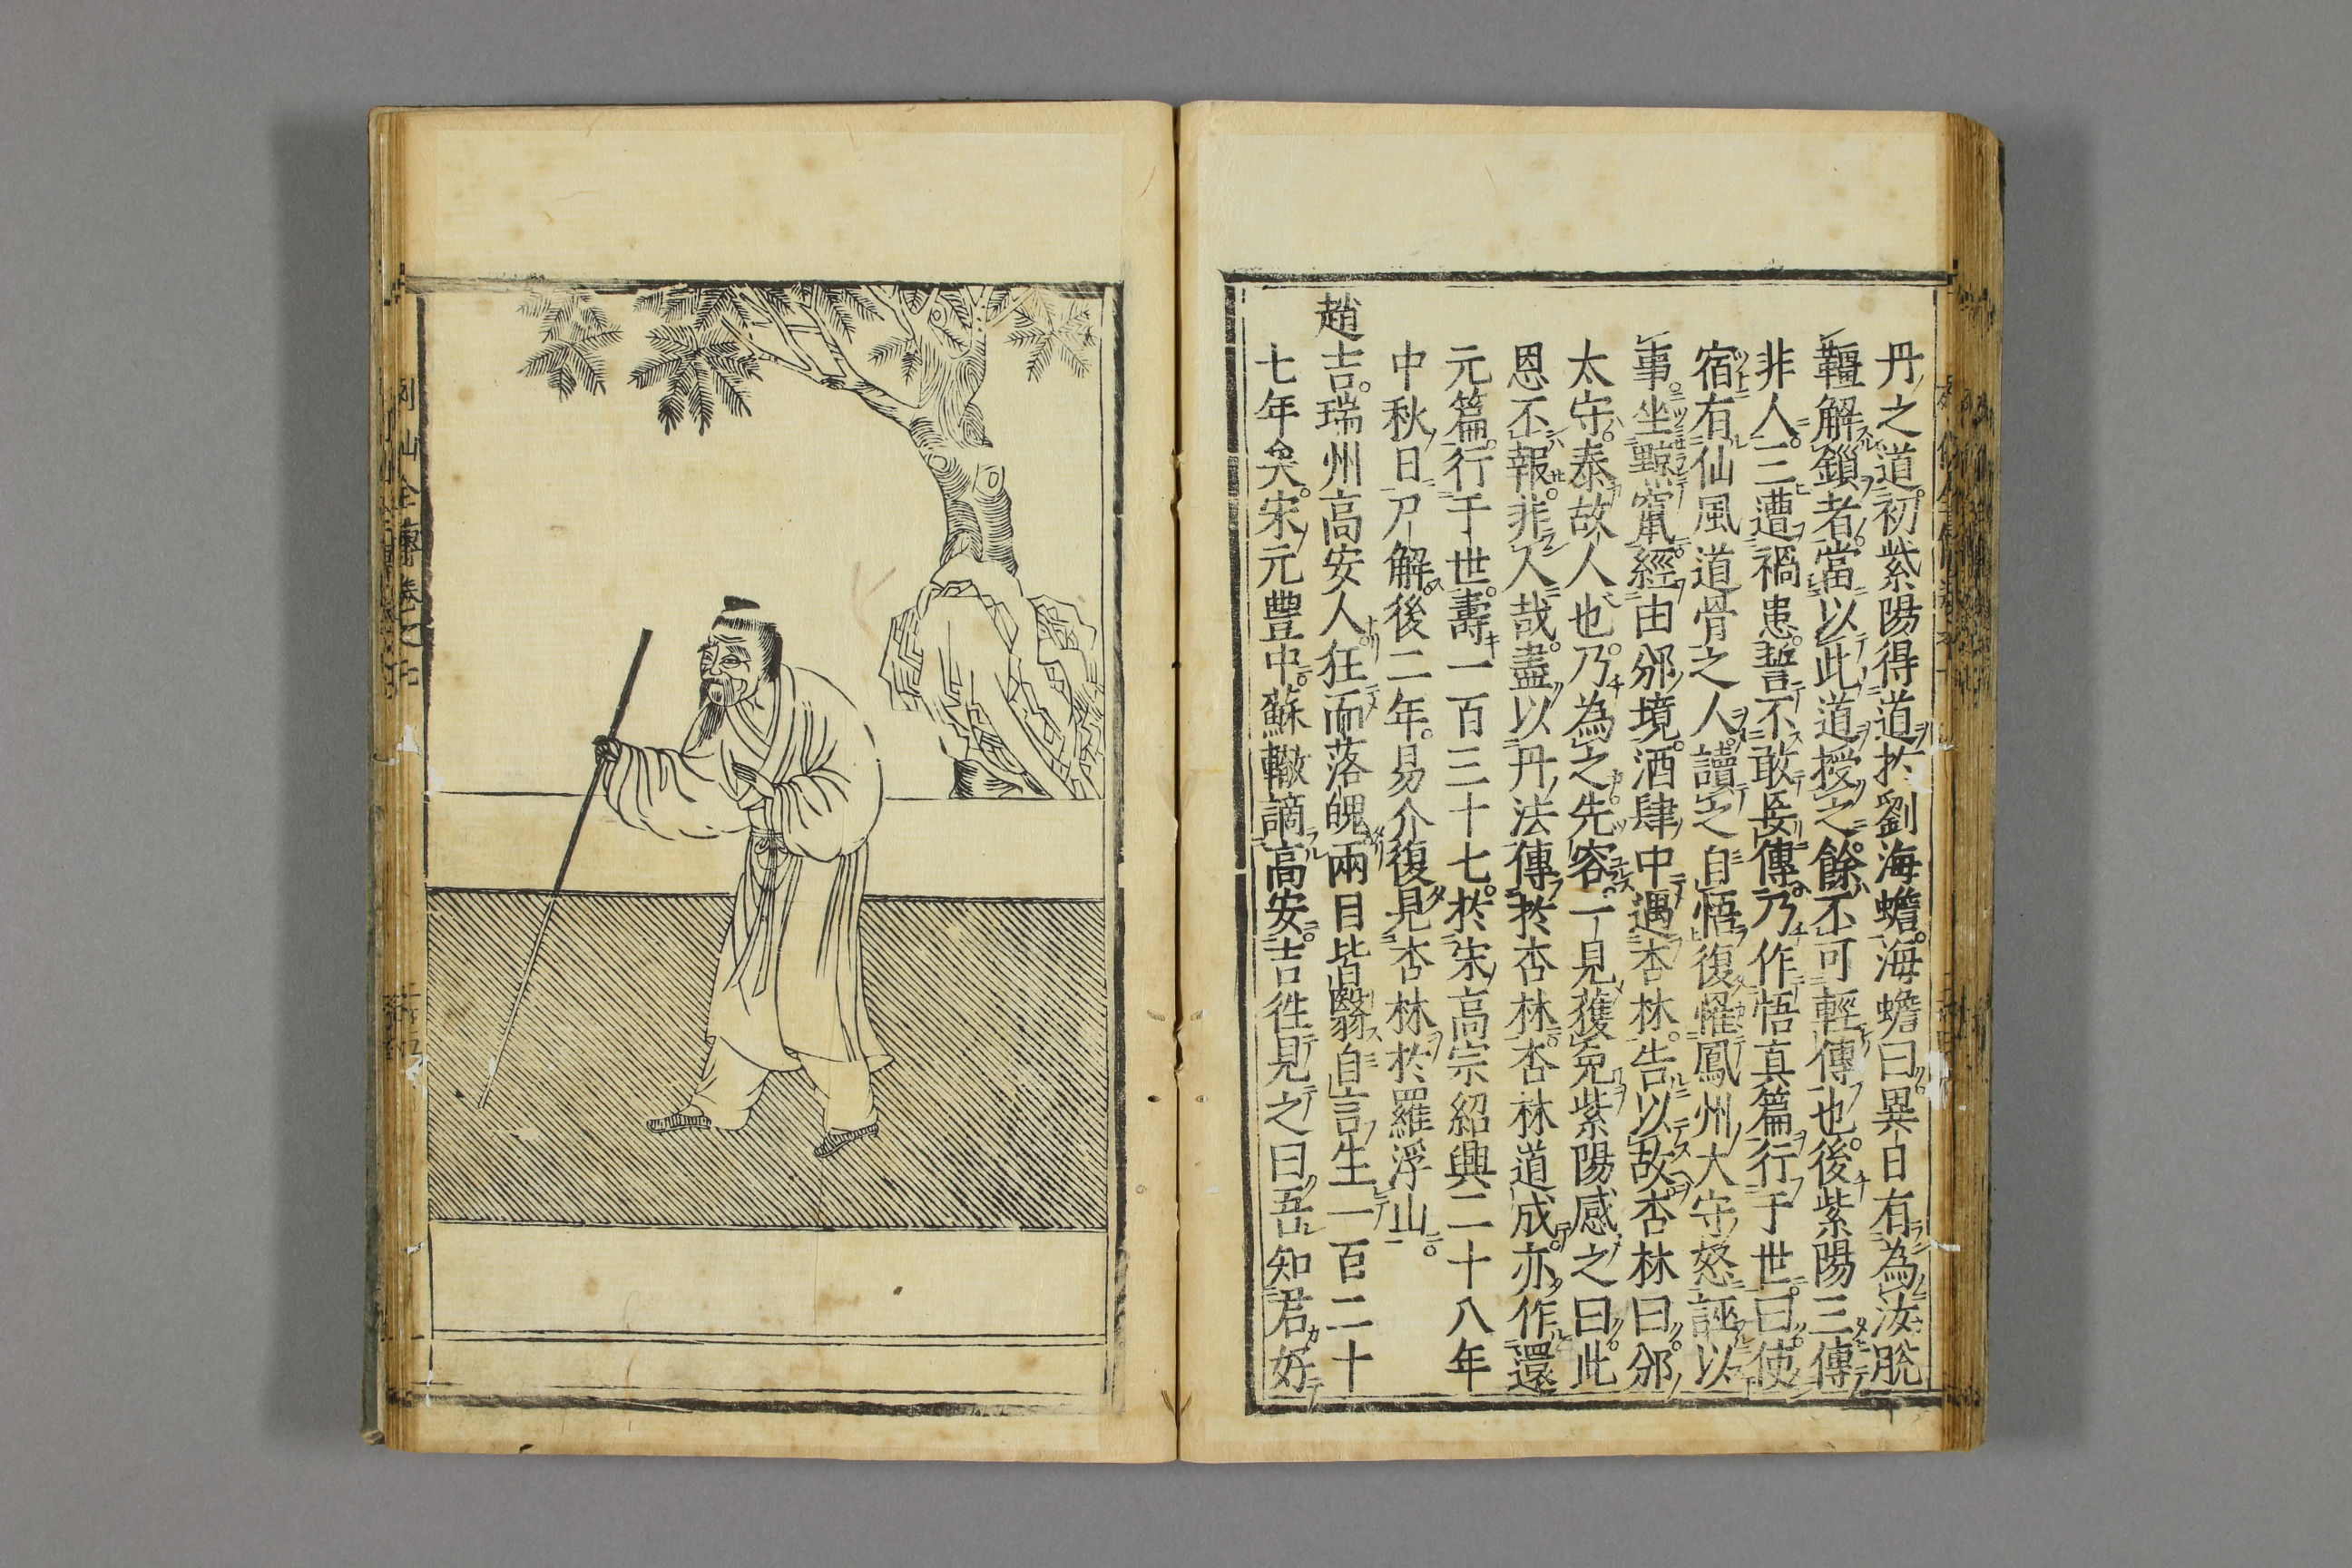 丹之道初紫陽得道於劉海蟾海蟾曰異日有為汝脫
韁解鎖者當以此道授之餘不可輕傳也後紫陽三傳
非人三遭禍患誓不敢妄傳乃作悟真篇行于世曰使
宿有仙風道骨之人讀之自悟復罹鳳州大守怒誣以
事坐黥竄經由邠境酒肆中遇杏林告以故杏林曰邠
太守泰故人也乃為之先容一見獲免紫陽感之曰此
恩不報非人哉盡以丹法傳於杏林杏林道成亦作還
元篇行于世壽一百三十七於宋高宗紹興二十八年
中秋日尸解後二年易介復見杏林於羅浮山
趙吉瑞州高安人狂而落魄兩目皆翳自言生一百二十
七年矣宋元豐中蘇轍謫高安吉徃見之曰吾知君好
列仙全傳卷之七